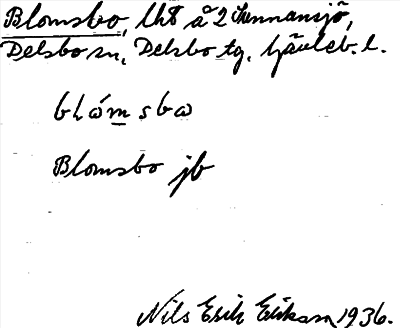 Blomsbo, lht å 2 Sunnansjö,
Delsbo sn, Delsbo tg, Gävleb. l.
blómsbω
Blomsbo jb
Nils Erik Erikson 1936.